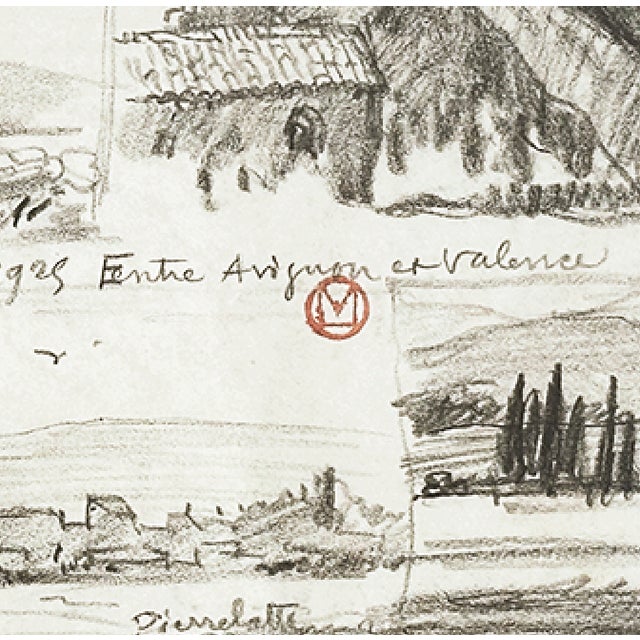 1925 Eentre Avignon et Valence
Pierrelatte